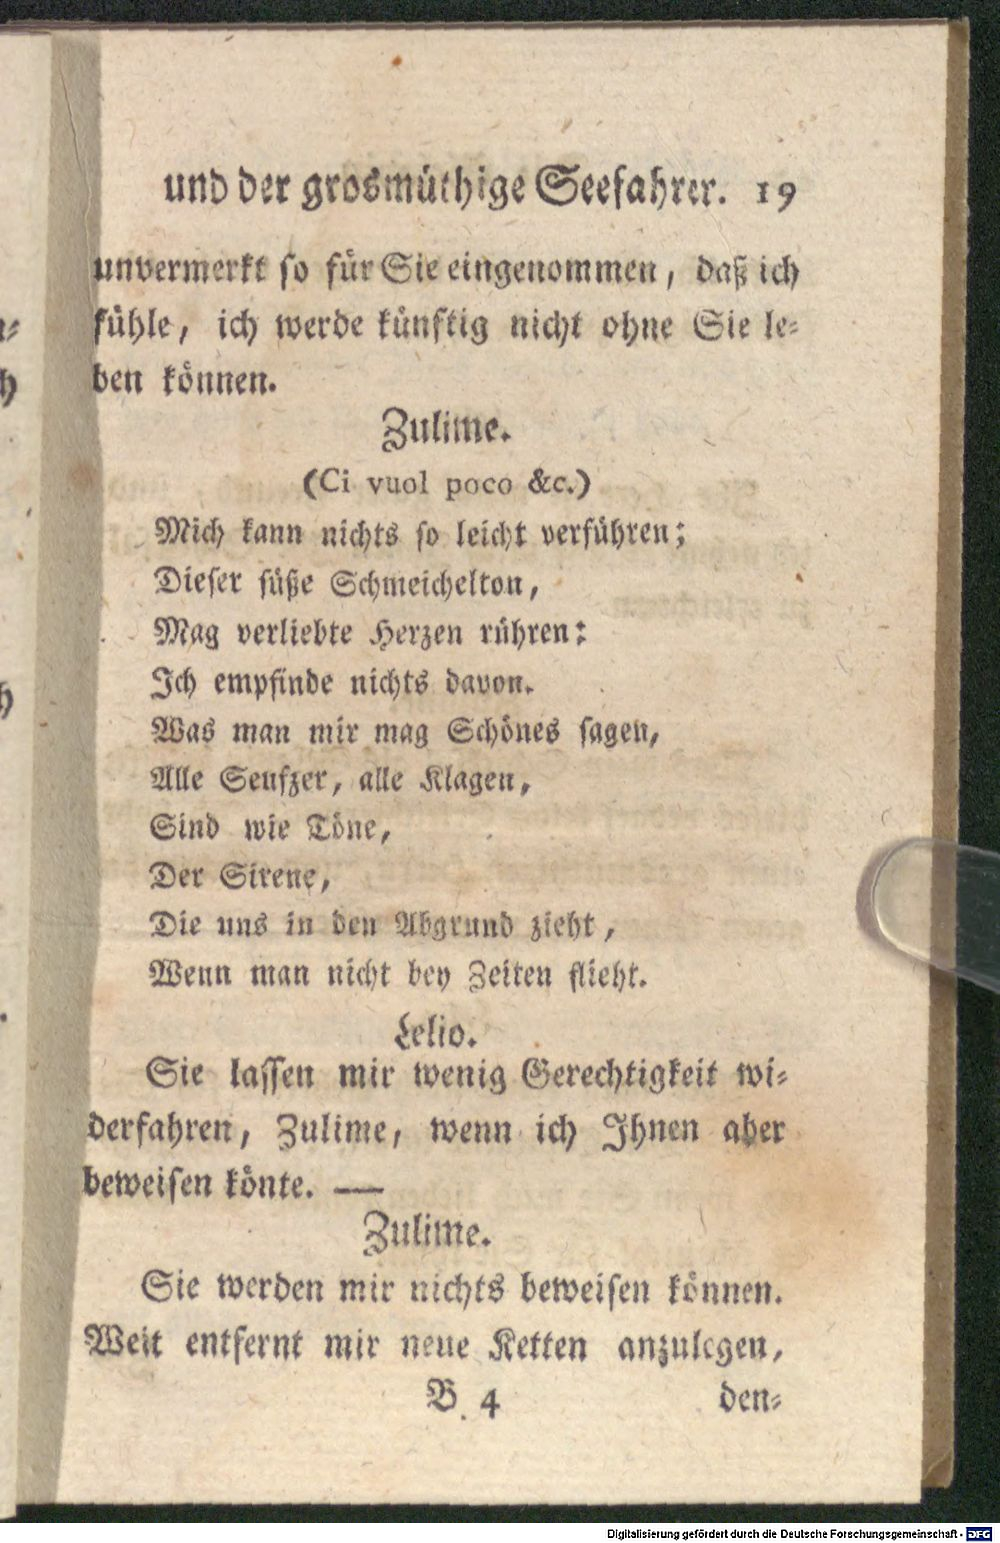 und der grosmüthige Seefahrer. 19
unvermerkt so für Sie eingenommen, daß ich
fühle, ich werde künftig nicht ohne Sie le-
ben können.
Zulime.
(Ci vuol poco &c.)
Mich kann nichts so leicht verführen;
Dieser süße Schmeichelton,
Mag verliebte Herzen rühren:
Ich empfinde nichts davon.
Was man mir mag Schönes sagen,
Alle Seufzer, alle Klagen,
Sind wie Töne,
Der Sirene,
Die uns in den Abgrund zieht,
Wenn man nicht bey Zeiten flieht.
Lelio.
Sie lassen mir wenig Gerechtigkeit wi-
derfahren, Zulime, wenn ich Ihnen aber
beweisen könte. —
Zulime.
Sie werden mir nichts beweisen können.
Weit entfernt mir neue Ketten anzulegen,
B 4 den-
Digitalisierung gefördert durch die Deutsche Forschungsgemeinschaft - DFG